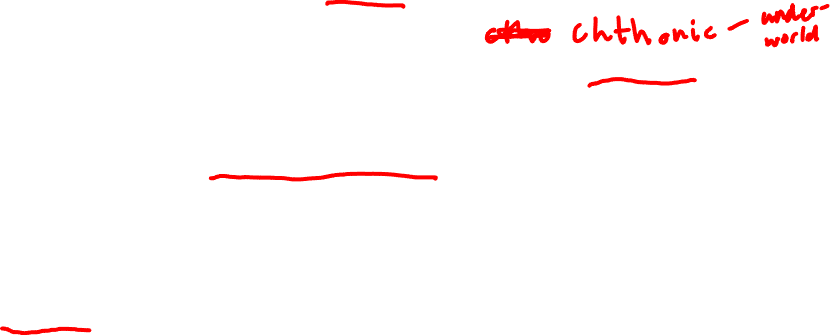 chthonic – under-
world